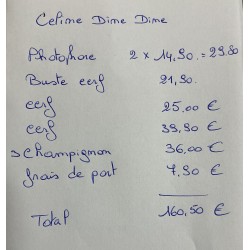 Celine Dime Dime
Photophore 2 x 14,90.= 29.80
Buste cerf 21,90.
cerf 25.00 €
cerf 39,90 €
> champignon 36,00 €
frais de port 7,90 €
Total 160,50 €